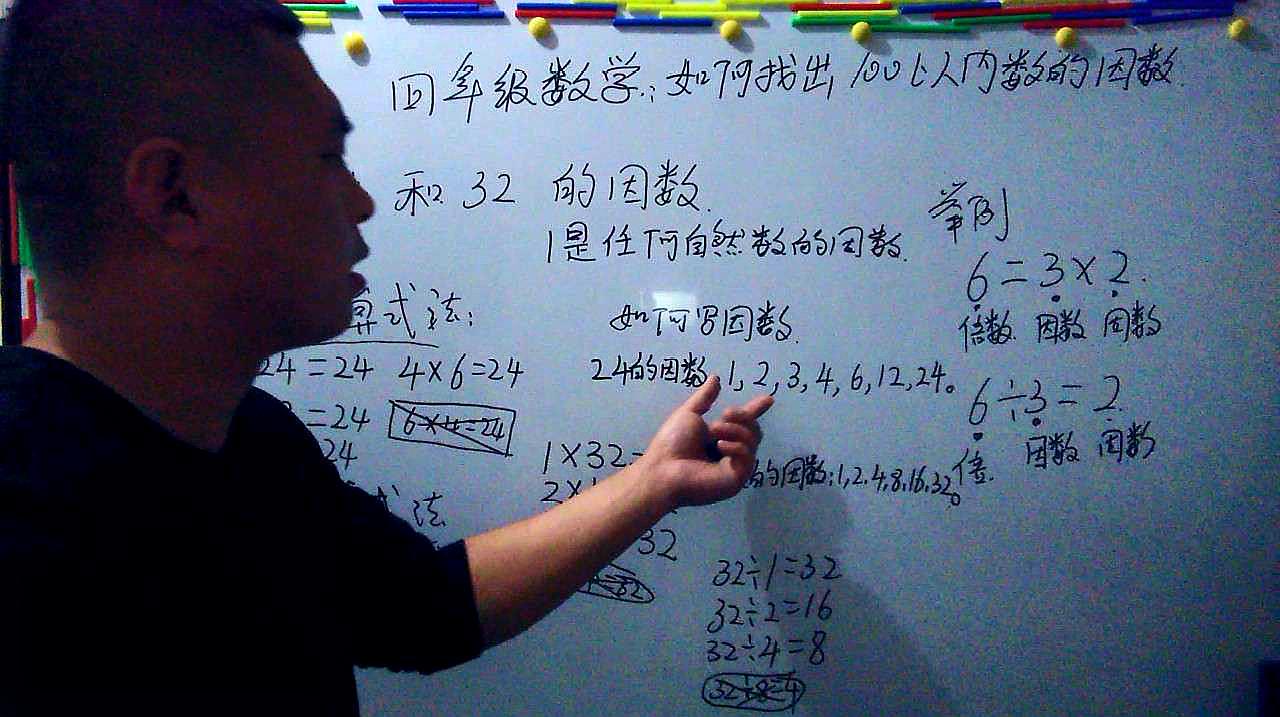 四年级数学:如何找出100以内数的因数.
和32 的因数.
1是任何自然数的因数.
举例
6=3×2.
倍数 因数 因数
6÷3=2.
倍. 因数 因数
如何写因数.
24的因数:1,2,3,4,6,12,24。
的因数:1,2,4,8,16,32。
算式法:
24=24 4×6=24
=24 6×4=24
24
式法
1×32=
2×1
32
=32
32÷1=32
32÷2=16
32÷4=8
32÷8=4